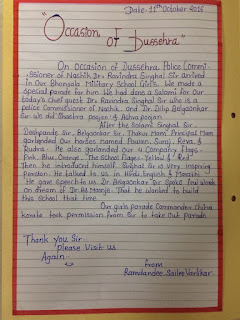 Date- 11th October 2016
"Occasion of Dussehra"
On Occasion of Dussehra, Police Commi-
-ssioner of Nashik Dr. Ravindra Singhal Sir arrived
in Our Bhonsala Military School Girls. We made a
Special parade for him. We had done a Salami for Our
today's chief guest Dr. Ravindra Singhal Sir who is a
police Commissioner of Nashik. and Dr. Dilip Belgaonkar
Sir. We did Shastra poojan & Ashva poojan.
After the Salami Singhal Sir,
Deshpande Sir, Belgaonkar Sir, Thakur Mam, Principal Mam
garlanded Our horses named Pawan, Suraj, Reva, &
Rudra. He also garlanded Our 4 Company flags-
Pink, Blue, Orange, The School flags- Yellow & Red
Then he introduced himself. Singhal Sir is very inspiring
person. He talked to us in Hindi, English & Marathi.
He gave speech to us. Dr. Belgaonkar Sir Spoke few words
on dream of Dr. B.S Moonje. That he wanted to build
this school that time.
Our girls parade Commander Chitra
took permission from Sir to take out parade.
Thank you Sir
Please Visit us
Again
From
Ramdandee Sailee